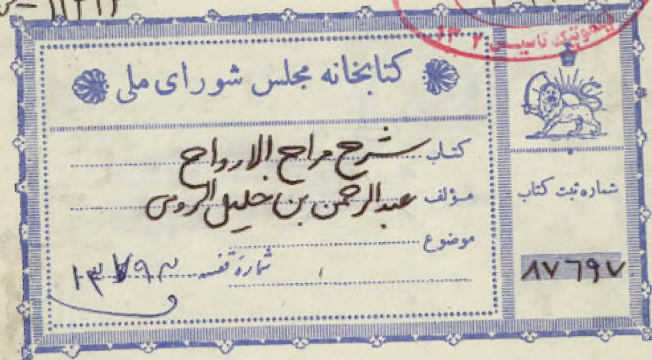 کتابخانه مجلس شورای ملی
کتاب شرح مراح الارواح
مؤلف عبدالرحمن بن خلیل الرومی
موضوع
شماره قفسه
شماره ثبت کتاب
۸۷۶۹۷